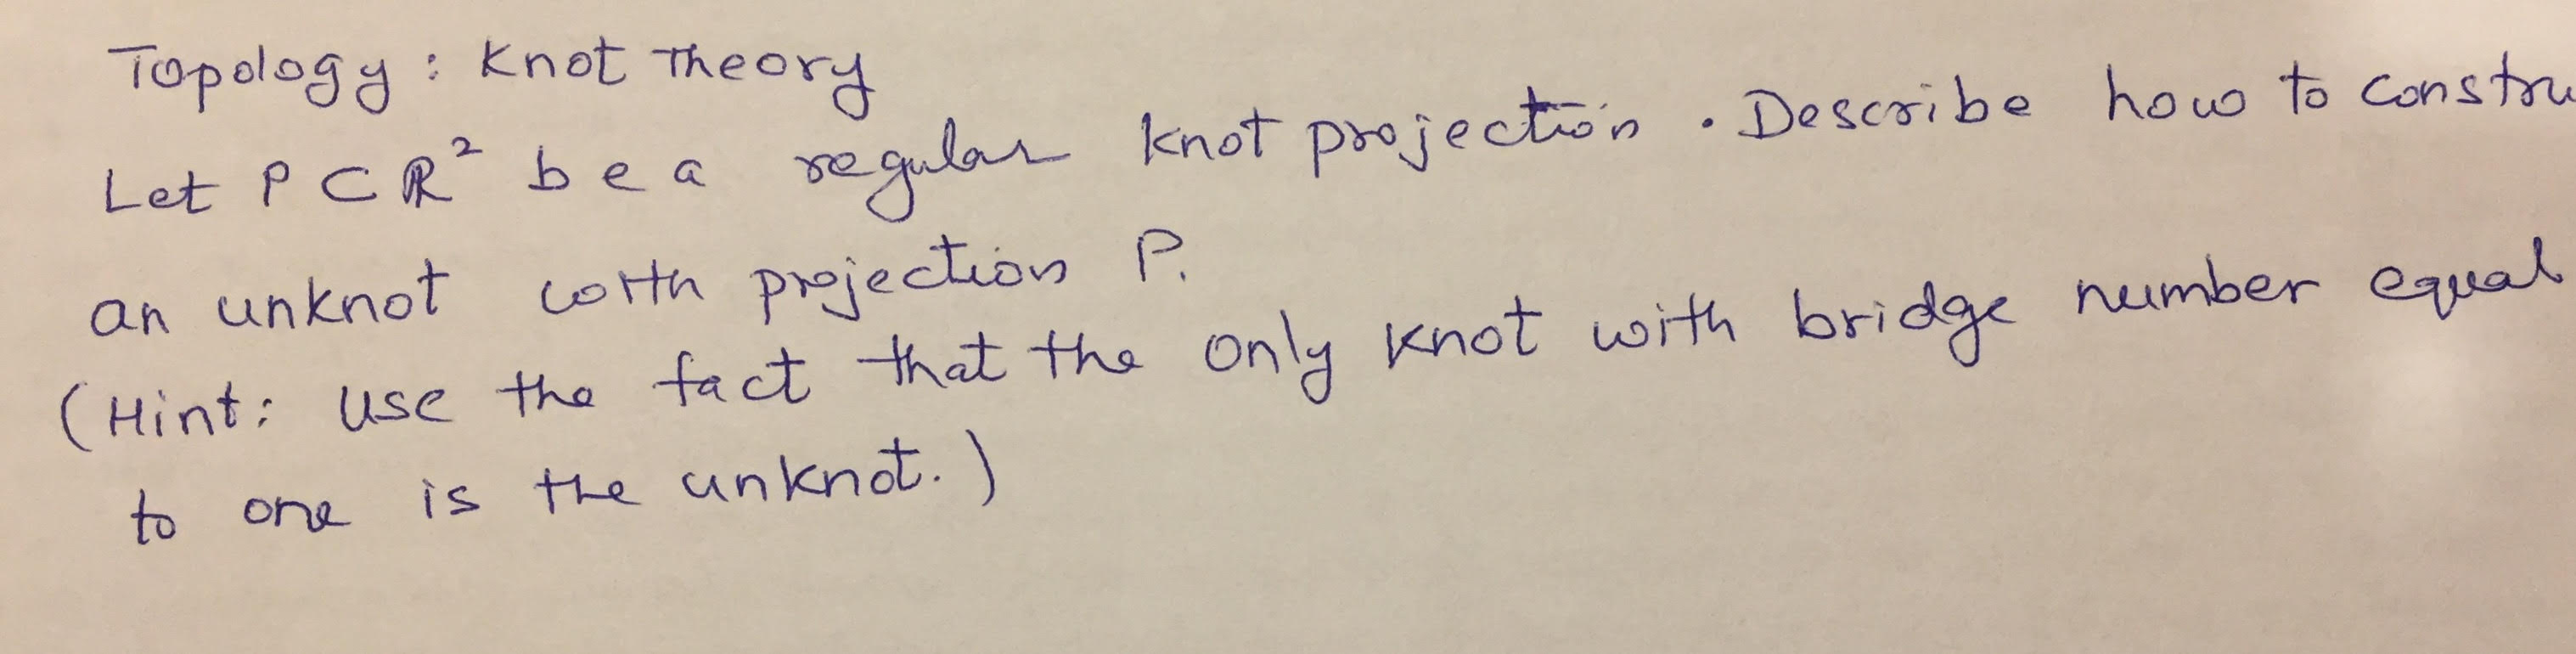 Topology: Knot Theory
Let P ⊂ ℝ² be a regular knot projection. Describe how to constru
an unknot with projection P.
(Hint: use the fact that the only knot with bridge number equal
to one is the unknot.)